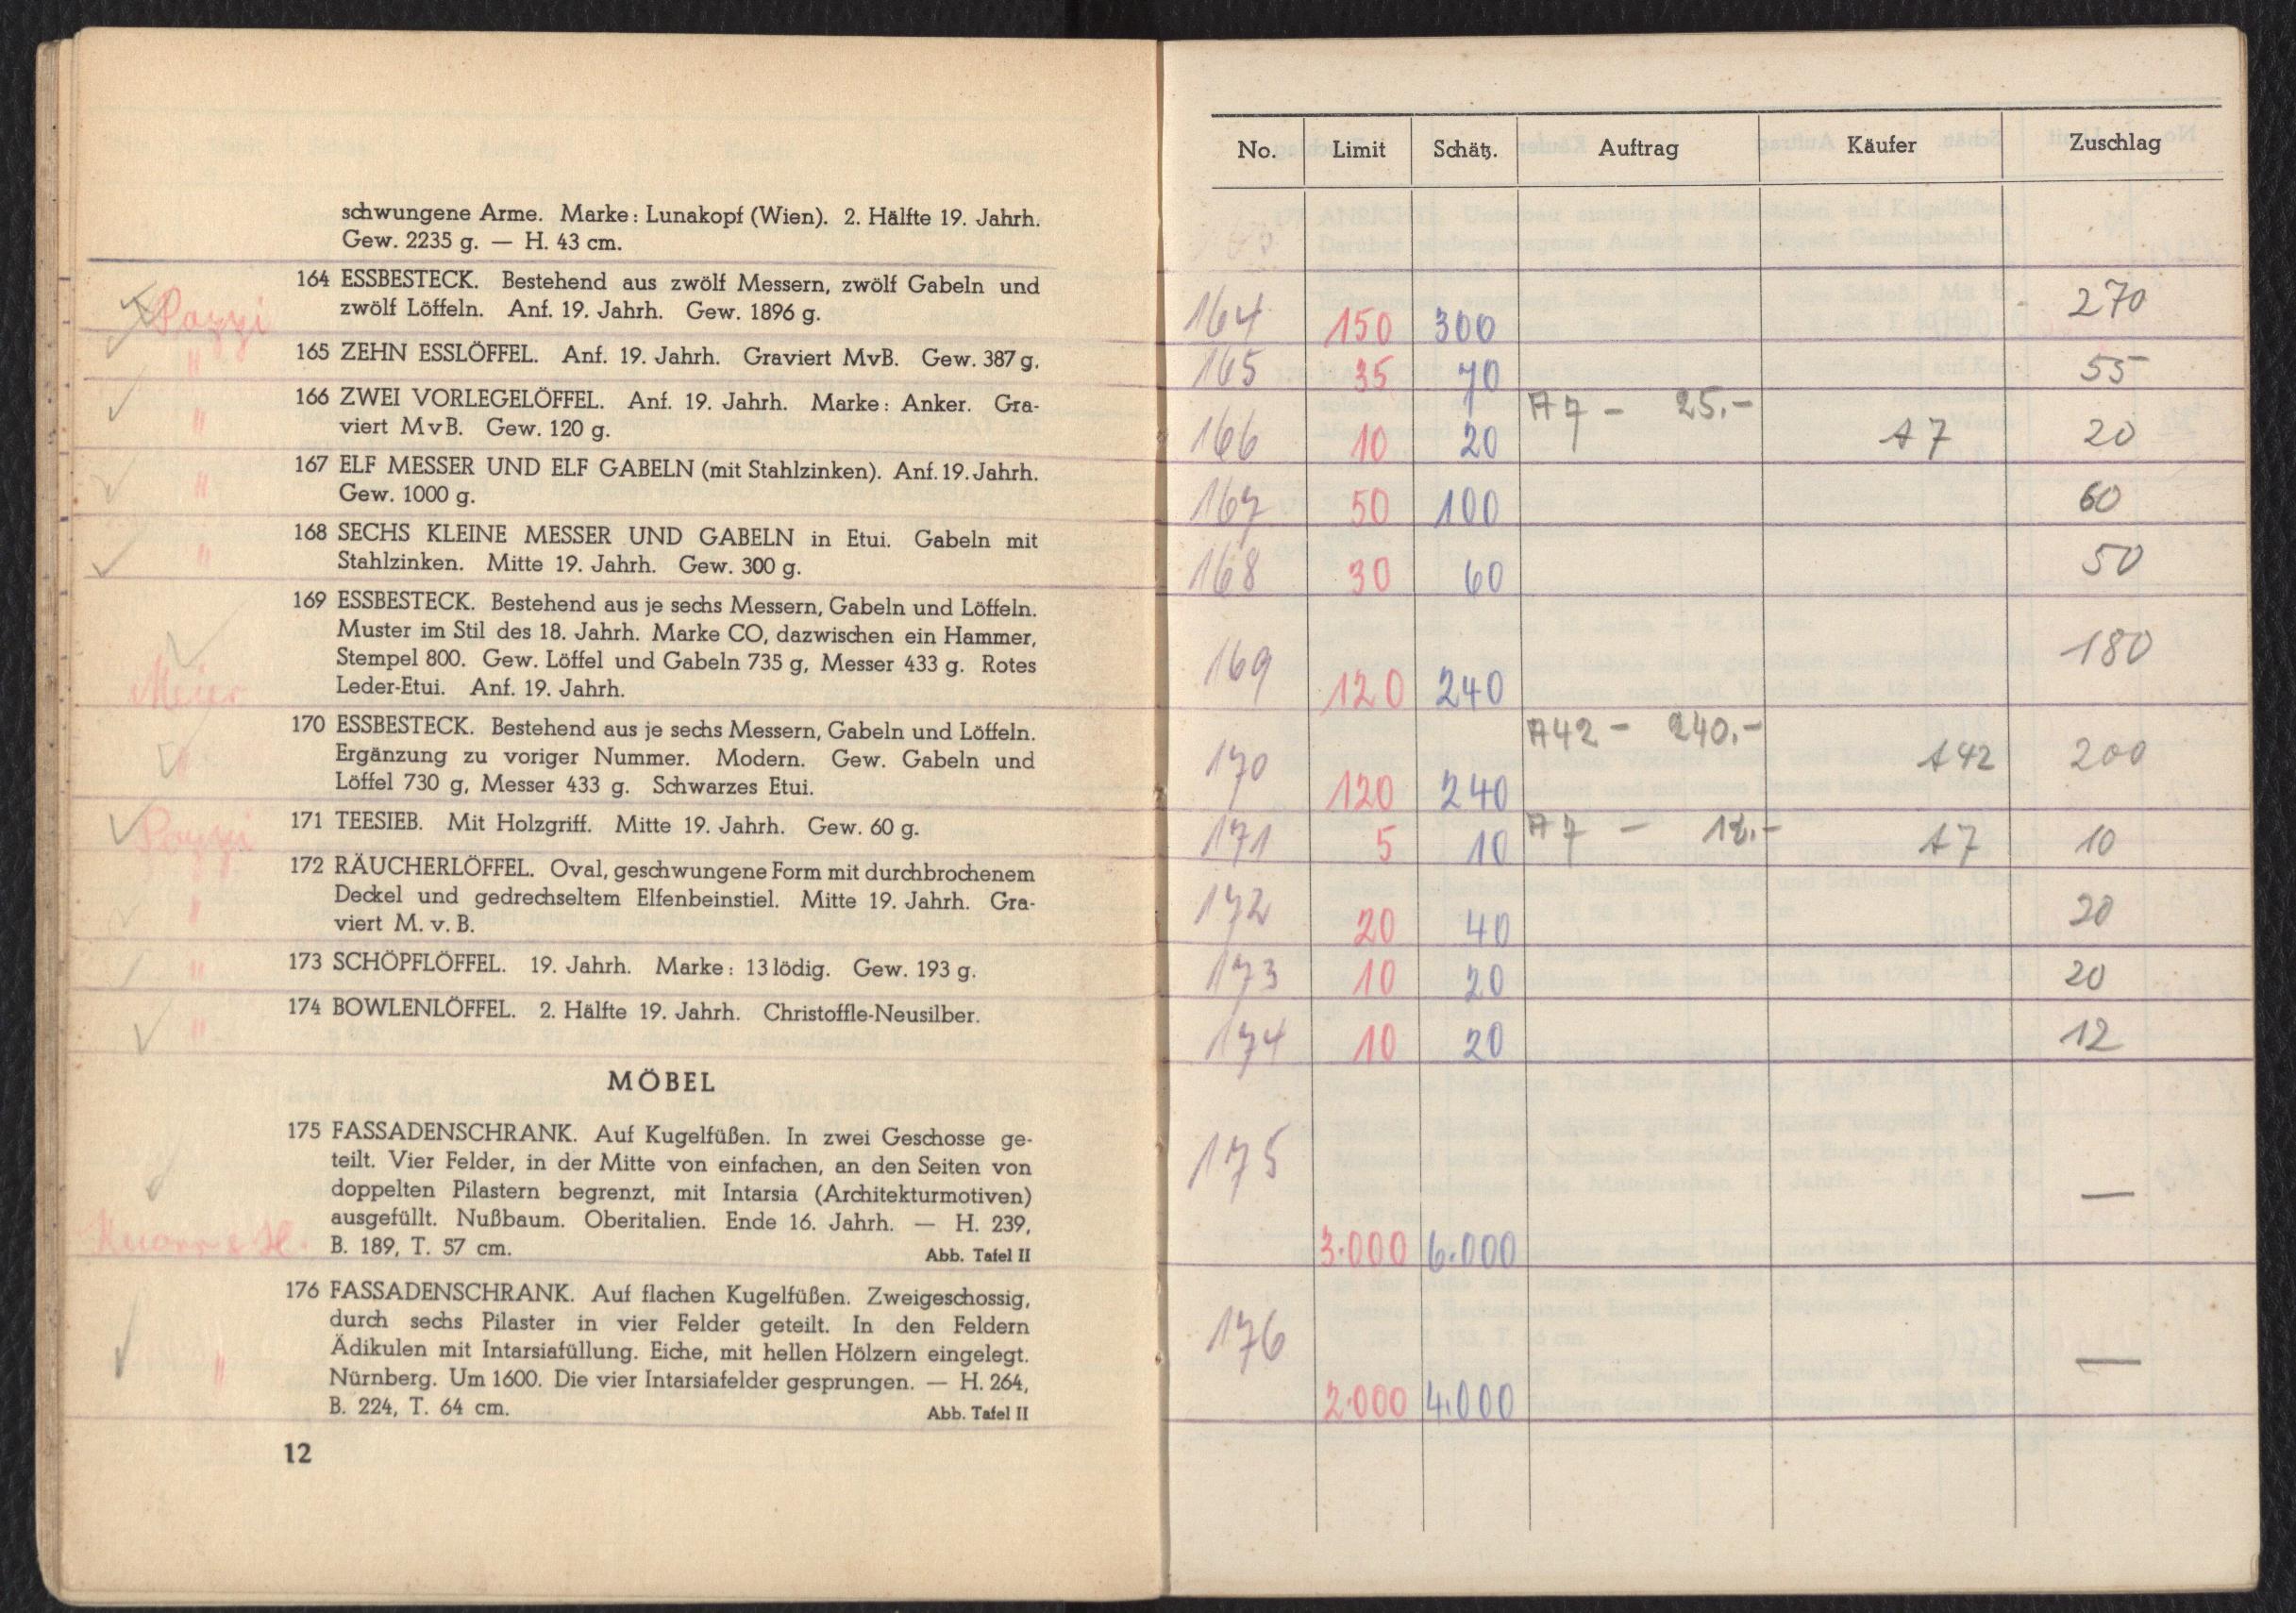 schwungene Arme. Marke: Lunakopf (Wien). 2. Hälfte 19. Jahrh.
Gew. 2235 g. — H. 43 cm.
Pozzi
164 ESSBESTECK. Bestehend aus zwölf Messern, zwölf Gabeln und
zwölf Löffeln. Anf. 19. Jahrh. Gew. 1896 g.
" 165 ZEHN ESSLÖFFEL. Anf. 19. Jahrh. Graviert MvB. Gew. 387 g.
" 166 ZWEI VORLEGELÖFFEL. Anf. 19. Jahrh. Marke: Anker. Gra-
viert MvB. Gew. 120 g.
" 167 ELF MESSER UND ELF GABELN (mit Stahlzinken). Anf. 19. Jahrh.
Gew. 1000 g.
" 168 SECHS KLEINE MESSER UND GABELN in Etui. Gabeln mit
Stahlzinken. Mitte 19. Jahrh. Gew. 300 g.
169 ESSBESTECK. Bestehend aus je sechs Messern, Gabeln und Löffeln.
Muster im Stil des 18. Jahrh. Marke CO, dazwischen ein Hammer,
Stempel 800. Gew. Löffel und Gabeln 735 g, Messer 433 g. Rotes
Meier Leder-Etui. Anf. 19. Jahrh.
170 ESSBESTECK. Bestehend aus je sechs Messern, Gabeln und Löffeln.
" Ergänzung zu voriger Nummer. Modern. Gew. Gabeln und
Löffel 730 g, Messer 433 g. Schwarzes Etui.
Pozzi 171 TEESIEB. Mit Holzgriff. Mitte 19. Jahrh. Gew. 60 g.
172 RÄUCHERLÖFFEL. Oval, geschwungene Form mit durchbrochenem
" Deckel und gedrechseltem Elfenbeinstiel. Mitte 19. Jahrh. Gra-
viert M. v. B.
" 173 SCHÖPFLÖFFEL. 19. Jahrh. Marke: 13 lödig. Gew. 193 g.
" 174 BOWLENLÖFFEL. 2. Hälfte 19. Jahrh. Christoffle-Neusilber.
MÖBEL
175 FASSADENSCHRANK. Auf Kugelfüßen. In zwei Geschosse ge-
teilt. Vier Felder, in der Mitte von einfachen, an den Seiten von
doppelten Pilastern begrenzt, mit Intarsia (Architekturmotiven)
ausgefüllt. Nußbaum. Oberitalien. Ende 16. Jahrh. — H. 239,
B. 189, T. 57 cm. Abb. Tafel II
176 FASSADENSCHRANK. Auf flachen Kugelfüßen. Zweigeschossig,
durch sechs Pilaster in vier Felder geteilt. In den Feldern
" Ädikulen mit Intarsiafüllung. Eiche, mit hellen Hölzern eingelegt.
Nürnberg. Um 1600. Die vier Intarsiafelder gesprungen. — H. 264,
B. 224, T. 64 cm. Abb. Tafel II
12
No. Limit Schätz. Auftrag Käufer Zuschlag
164 150 300 270
165 35 70 55
166 10 20 A7 – 25.– A7 20
167 50 100 60
168 30 60 50
169 120 240 180
170 120 240 A42 – 240.– A42 200
171 5 10 A7 – 12.– A7 10
172 20 40 20
173 10 20 20
174 10 20 12
175 3.000 6.000 —
176 2.000 4.000 —